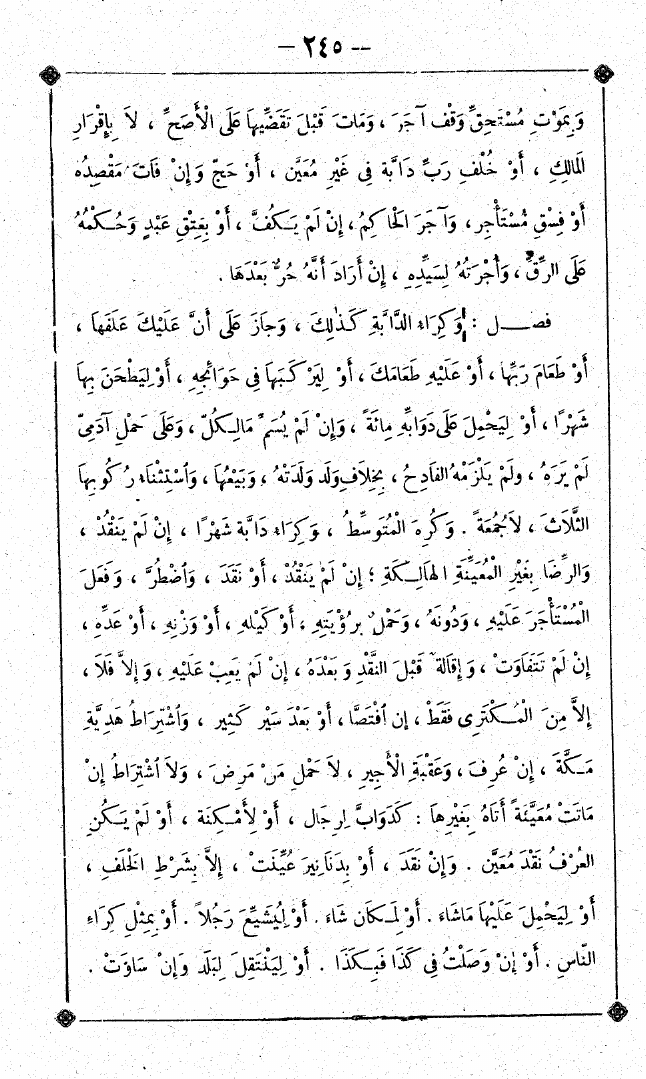 — ٢٤٥ —
وَبِمَوْتِ مُسْتَحِقِّ وَقْفٍ آجَرَ ، وَمَاتَ قَبْلَ تَقَضِّيهَا عَلَى الْأَصَحِّ ، لاَ بِإِقْرَارِ
الْمَالِكِ ، أَوْ خُلْفِ رَبِّ دَابَّةٍ فِي غَيْرِ مُعَيَّنٍ ، أَوْ حَجٍّ وَإِنْ فَاتَ مَقْصِدُهُ
أَوْ فِسْقِ مُسْتَأْجِرٍ ، وَآجَرَ الْحَاكِمُ ، إِنْ لَمْ يَكُفَّ ، أَوْ بِعِتْقِ عَبْدٍ وَحُكْمُهُ
عَلَى الرِّقِّ ، وَأُجْرَتُهُ لِسَيِّدِهِ ، إِنْ أَرَادَ أَنَّهُ حُرٌّ بَعْدَهَا .
فصـــل : وَكِرَاءُ الدَّابَّةِ كَذٰلِكَ ، وَجَازَ عَلَى أَنَّ عَلَيْكَ عَلَفَهَا ،
أَوْ طَعَامَ رَبِّهَا ، أَوْ عَلَيْهِ طَعَامَكَ ، أَوْ لِيَرْكَبَهَا فِي حَوَائِجِهِ ، أَوْ لِيَطْحَنَ بِهَا
شَهْرًا ، أَوْ لِيَحْمِلَ عَلَى دَوَابِّهِ مِائَةً ، وَإِنْ لَمْ يُسَمِّ مَالِكُلٍّ ، وَعَلَى حَمْلِ آدَمِيٍّ
لَمْ يَرَهُ ، ولَمْ يَلْزَمْهُ الْفَادِحُ ، بِخِلَافِ وَلَدٍ وَلَدَتْهُ ، وَبَيْعُهَا ، وَاسْتِثْنَاءُ رُكُوبِهَا
الثَّلَاثَ ، لَا جُمُعَةً . وَكُرِهَ الْمُتَوَسِّطُ ، وَكِرَاءُ دَابَّةٍ شَهْرًا ، إِنْ لَمْ يَنْقُدْ ،
وَالرِّضَا بِغَيْرِ الْمُعَيَّنَةِ الْهَالِكَةِ ؛ إِنْ لَمْ يَنْقُدْ ، أَوْ نَقَدَ ، وَاضْطُرَّ ، وَفَعَلَ
الْمُسْتَأْجَرَ عَلَيْهِ ، وَدُونَهُ ، وَحَمْلٌ بِرُؤْيَتِهِ ، أَوْ كَيْلِهِ ، أَوْ وَزْنِهِ ، أَوْ عَدِّهِ ،
إِنْ لَمْ تَتَفَاوَتْ ، وَإِقَالَةٌ قَبْلَ النَّقْدِ وَبَعْدَهُ ، إِنْ لَمْ يَغِبْ عَلَيْهِ ، وَإِلاَّ فَلاَ ،
إِلاَّ مِنَ الْمُكْتَرِي فَقَطْ ، إِن اقْتَصَّا ، أَوْ بَعْدَ سَيْرٍ كَثِيرٍ ، وَاشْتِرَاطُ هَدِيَّةِ
مَكَّةَ ، إِنْ عُرِفَ ، وَعُقْبَةِ الْأَجِيرِ ، لاَ حَمْلِ مَنْ مَرِضَ ، وَلاَ اشْتِرَاطُ إِنْ
مَاتَتْ مُعَيَّنَةٌ أَتَاهُ بِغَيْرِهَا : كَدَوَابَّ لِرِجَالٍ ، أَوْ لِأَمْكِنَةٍ ، أَوْ لَمْ يَكُنِ
الْعُرْفُ نَقْدَ مُعَيَّنٍ . وَإِنْ نَقَدَ ، أَوْ بِدَنَانِيرَ عُيِّنَتْ ، إِلاَّ بِشَرْطِ الْخَلَفِ ،
أَوْ لِيَحْمِلَ عَلَيْهَا مَاشَاءَ . أَوْ لِمَكَانٍ شَاءَ . أَوْ لِيُشَيِّعَ رَجُلاً . أَوْ بِمِثْلِ كِرَاءِ
النَّاسِ . أَوْ إِنْ وَصَلْتُ فِي كَذَا فَبِكَذَا . أَوْ لِيَنْتَقِلَ لِبَلَدٍ وَإِنْ سَاوَتْ .